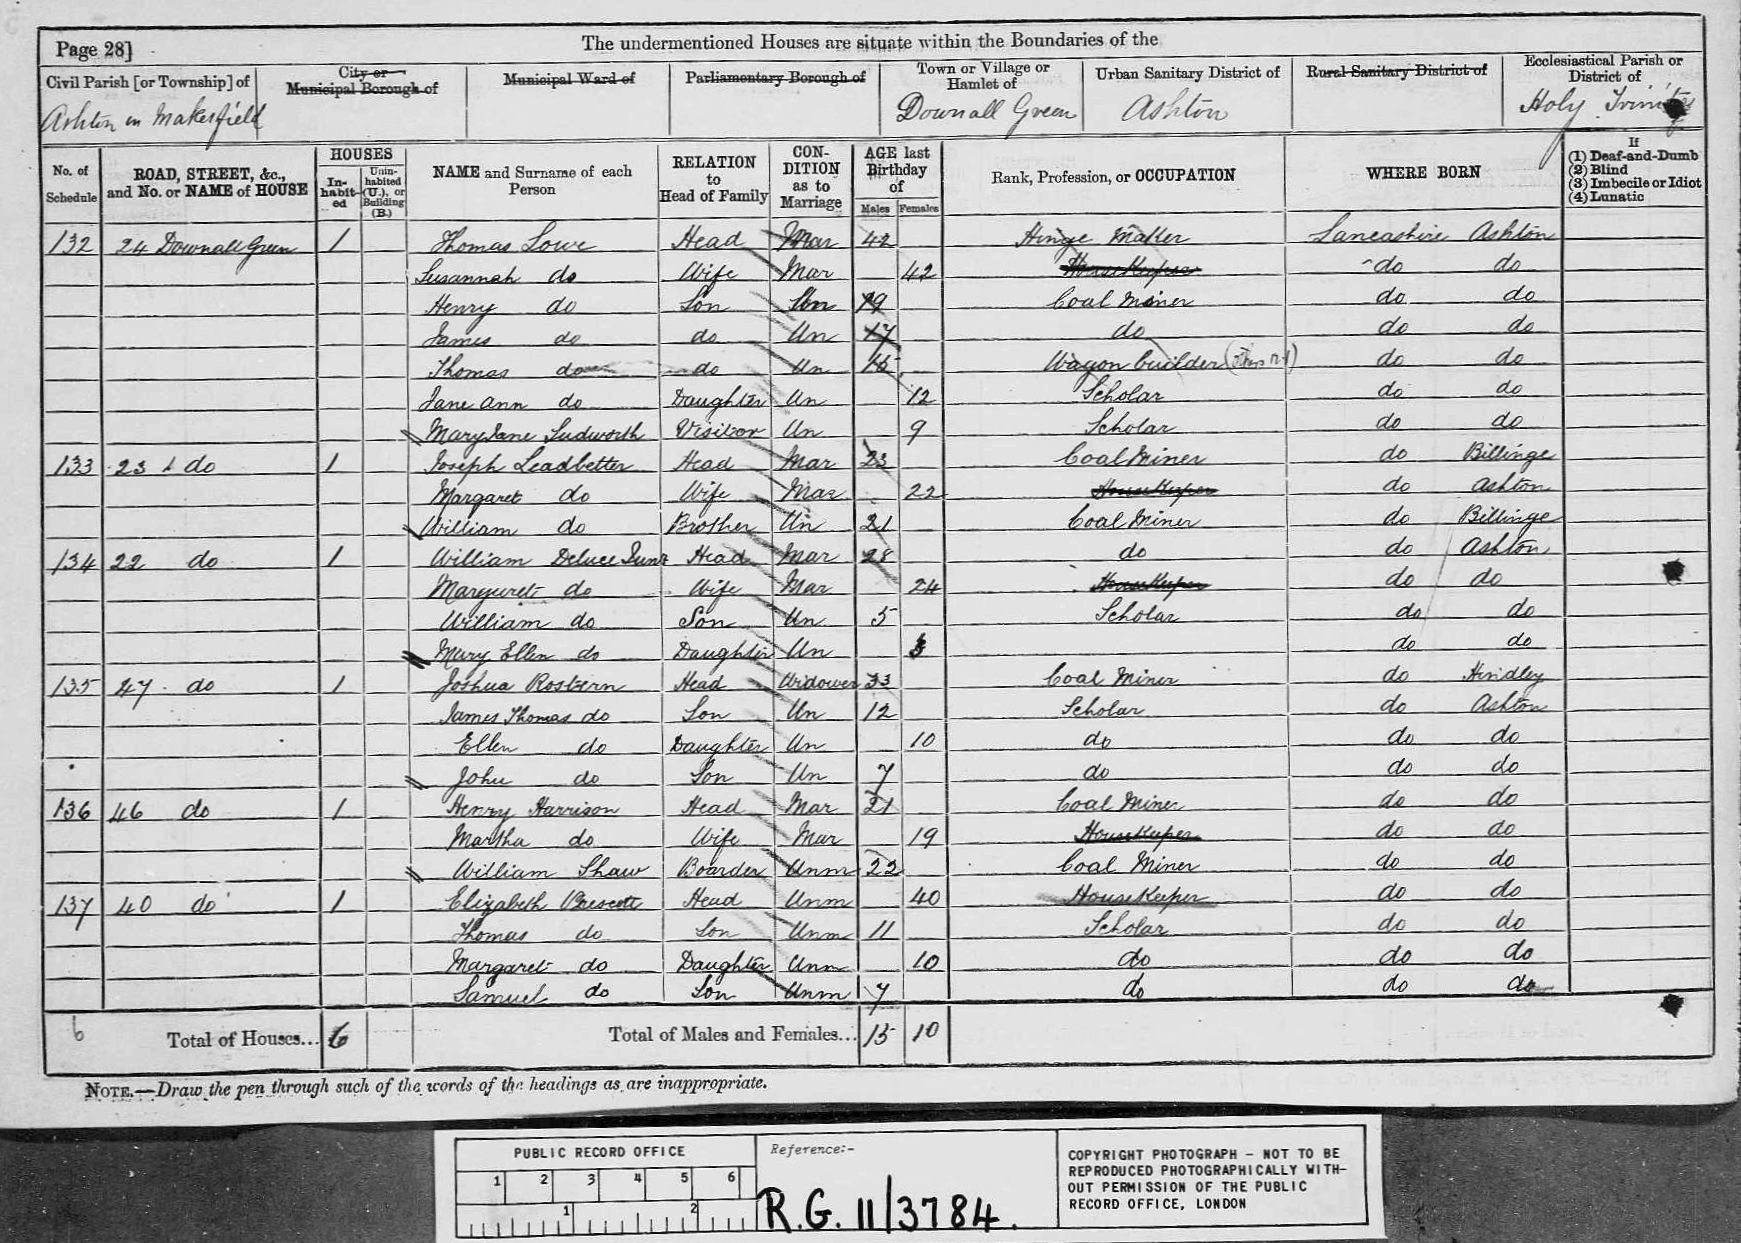 Page 28]
The undermentioned Houses are situate within the Boundaries of the
Civil Parish [or Township] of
City or Municipal Borough of
Municipal Ward of
Parliamentary Borough of
Town or Village or Hamlet of
Urban Sanitary District of
Rural Sanitary District of
Ecclesiastical Parish or District of
Ashton in Makerfield
Downall Green
Ashton
Holy Trinity
No. of Schedule
ROAD, STREET, &c., and No. or NAME of HOUSE
HOUSES
In-habit-ed
Unin-habited (U.), or Building (B.)
NAME and Surname of each Person
RELATION to Head of Family
CON-DITION as to Marriage
AGE last Birthday of
Males
Females
Rank, Profession, or OCCUPATION
WHERE BORN
If
(1) Deaf-and-Dumb
(2) Blind
(3) Imbecile or Idiot
(4) Lunatic
132 24 Downall Green 1 Thomas Lowe Head Mar 42 Hinge Maker Lancashire Ashton
Susannah do Wife Mar 42 Housekeeper do do
Henry do Son Un 19 Coal Miner do do
James do do Un 17 do do do
Thomas do do Un 15 Wagon builder do do
Jane Ann do Daughter Un 12 Scholar do do
Mary Jane Ludworth Visitor Un 9 Scholar do do
133 23 do 1 Joseph Leadbetter Head Mar 23 Coal Miner do Billinge
Margaret do Wife Mar 22 Housekeeper do Ashton
William do Brother Un 21 Coal Miner do Billinge
134 22 do 1 William Deluce Junr Head Mar 28 do do Ashton
Margaret do Wife Mar 24 Housekeeper do do
William do Son Un 5 Scholar do do
Mary Ellen do Daughter Un 3 do do
135 47 do 1 Joshua Rosbern Head Widower 33 Coal Miner do Hindley
James Thomas do Son Un 12 Scholar do Ashton
Ellen do Daughter Un 10 do do do
John do Son Un 7 do do do
136 46 do 1 Henry Harrison Head Mar 21 Coal Miner do do
Martha do Wife Mar 19 Housekeeper do do
William Shaw Boarder Unm 22 Coal Miner do do
137 40 do 1 Elizabeth Prescott Head Unm 40 HouseKeeper do do
Thomas do Son Unm 11 Scholar do do
Margaret do Daughter Unm 10 do do do
Samuel do Son Unm 7 do do do
6 Total of Houses... 6 Total of Males and Females... 15 10
NOTE.—Draw the pen through such of the words of the headings as are inappropriate.
PUBLIC RECORD OFFICE
1 2 3 4 5 6
1 2
Reference:-
R.G. 11/3784.
COPYRIGHT PHOTOGRAPH - NOT TO BE
REPRODUCED PHOTOGRAPHICALLY WITH-
OUT PERMISSION OF THE PUBLIC
RECORD OFFICE, LONDON